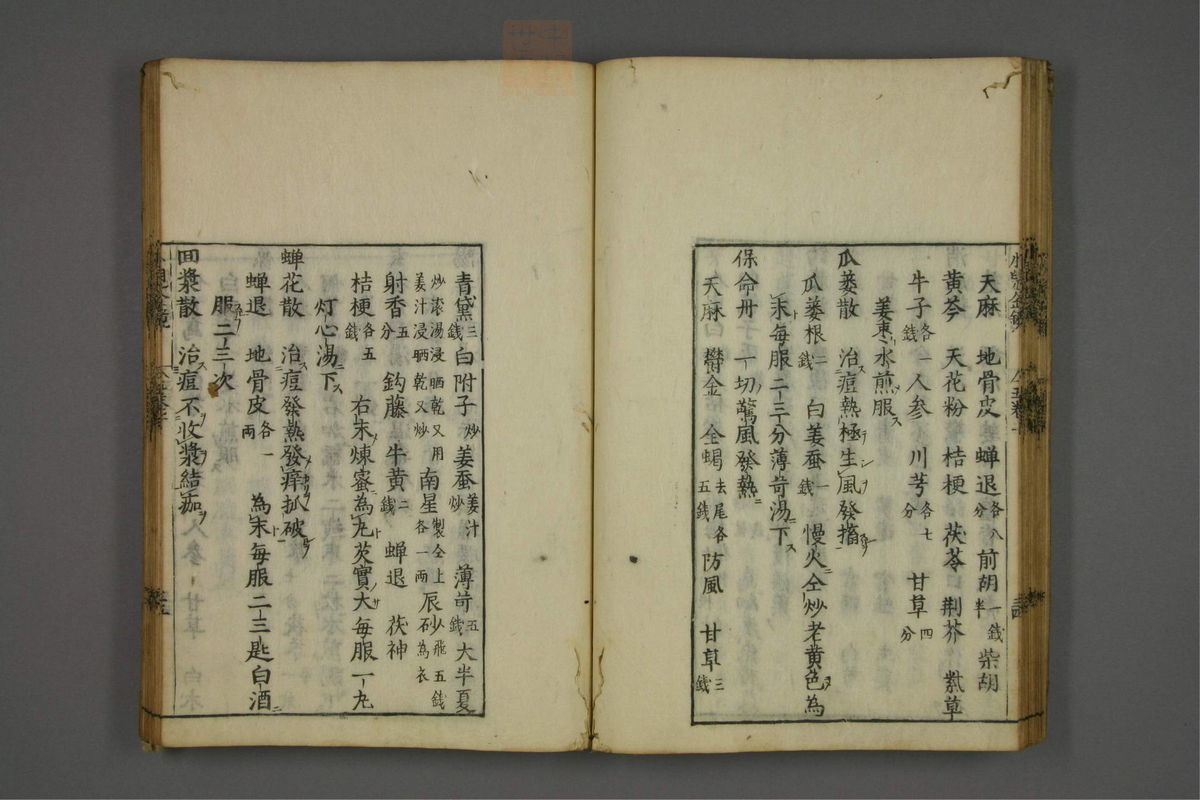 天麻 地骨皮 蝉退各八分 前胡一錢半 柴胡
黄芩 天花粉 桔梗 茯苓 荆芥 紫草
牛子各一錢 人参 川芎各七分 甘草四分
姜枣水煎服ス
瓜蒌散 治痘熱極生風發搐
瓜蒌根二錢 白姜蚕一錢 慢火仝炒老黄色為
末每服二三分薄苛湯下ス
保命丹 一切驚風發熱
天麻 鬱金 全蝎去尾各五錢 防風 甘草三錢
青黛三錢 白附子炒 姜蚕姜汁炒 薄苛五錢 大半夏
炒滚湯浸晒乾又用姜汁浸晒乾又炒 南星製仝上各一兩 辰砂飛五錢為衣
射香五分 鈎藤 牛黄二錢 蝉退 茯神
桔梗各五錢 右末煉蜜為丸芡實大每服一丸
灯心湯下ス
蝉花散 治痘發熱發痒扒破
蝉退 地骨皮各一兩 為末每服二三匙白酒
服二三次
回漿散 治痘不收漿結痂